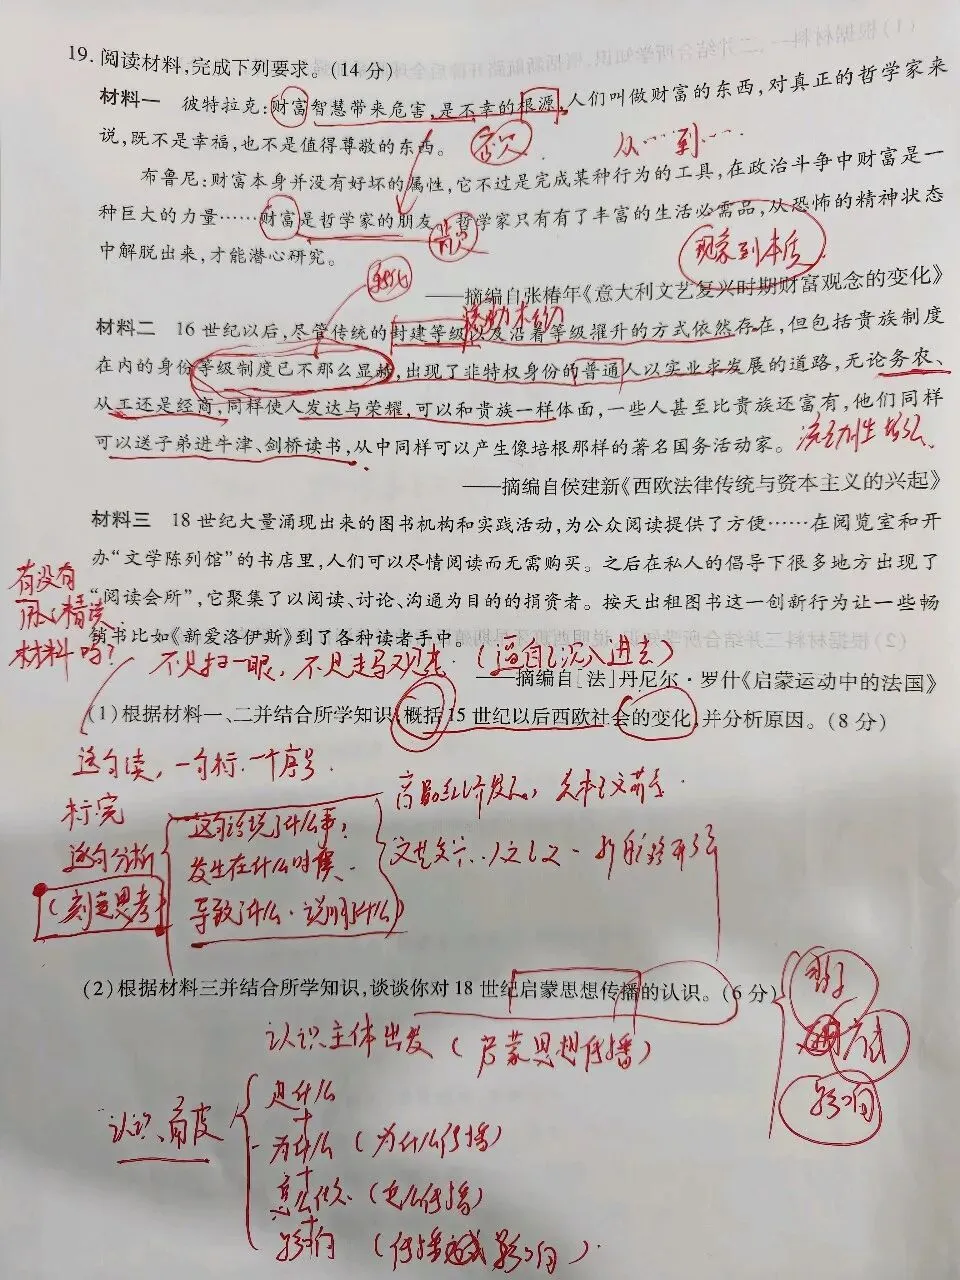 19. 阅读材料,完成下列要求。(14分)
材料一 彼特拉克:财富智慧带来危害,是不幸的根源,人们叫做财富的东西,对真正的哲学家来
说,既不是幸福,也不是值得尊敬的东西。
贫穷
从……到……
布鲁尼:财富本身并没有好坏的属性,它不过是完成某种行为的工具,在政治斗争中财富是一
种巨大的力量……财富是哲学家的朋友,哲学家只有有了丰富的生活必需品,从恐怖的精神状态
中解脱出来,才能潜心研究。
背景
现象到本质
变化
——摘编自张椿年《意大利文艺复兴时期财富观念的变化》
材料二 16世纪以后,尽管传统的封建等级以及沿着等级擢升的方式依然存在,但包括贵族制度
在内的身份等级制度已不那么显赫,出现了非特权身份的普通人以实业求发展的道路,无论务农、
从工还是经商,同样使人发达与荣耀,可以和贵族一样体面,一些人甚至比贵族还富有,他们同样
可以送子弟进牛津、剑桥读书,从中同样可以产生像培根那样的著名国务活动家。
流动性增强
——摘编自侯建新《西欧法律传统与资本主义的兴起》
材料三 18世纪大量涌现出来的图书机构和实践活动,为公众阅读提供了方便……在阅览室和开
办“文学陈列馆”的书店里,人们可以尽情阅读而无需购买。之后在私人的倡导下很多地方出现了
“阅读会所”,它聚集了以阅读、讨论、沟通为目的的捐资者。按天出租图书这一创新行为让一些畅
销书比如《新爱洛伊斯》到了各种读者手中。
有没有
用心精读
材料吗?
不是扫一眼,不是走马观花.(逼自己沉入进去)
——摘编自[法]丹尼尔·罗什《启蒙运动中的法国》
(1)根据材料一、二并结合所学知识,概括15世纪以后西欧社会的变化,并分析原因。(8分)
逐句读,一句标一个序号.
标完
逐句分析
(刻意思考)
这句话说了什么事,
发生在什么时候.
导致了什么.说明了什么)
商品经济发展,资本主义萌芽.
(2)根据材料三并结合所学知识,谈谈你对18世纪启蒙思想传播的认识。(6分)
认识主体出发(启蒙思想传播)
方式
影响
认识角度
是什么
为什么(为什么传播)
怎么做(怎么传播)
影响